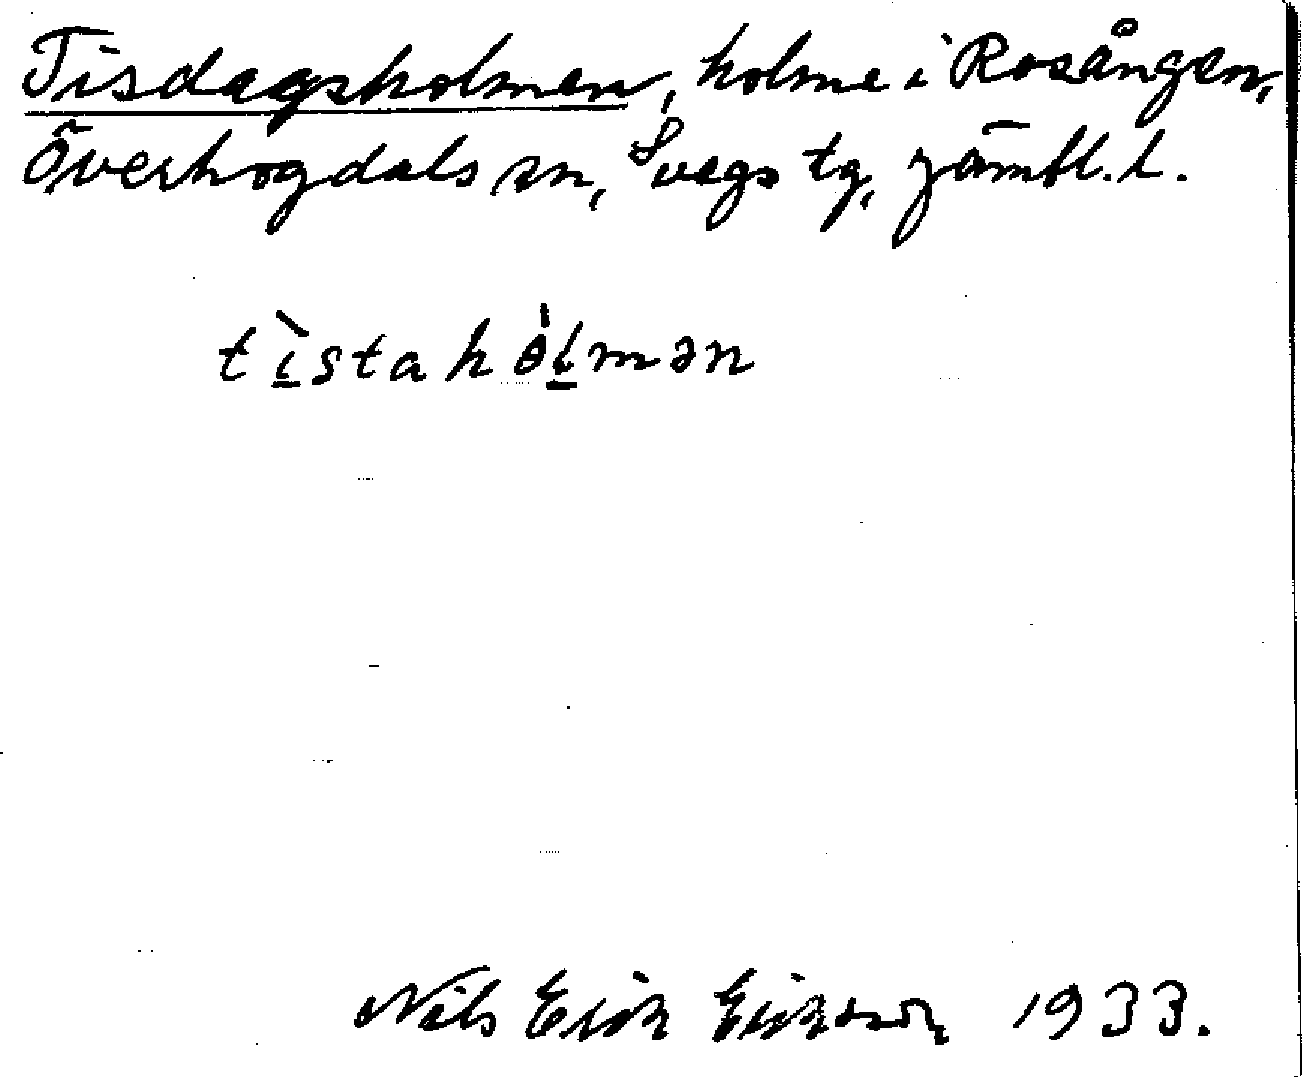 Tisdagsholmen, holme i Rosången,
Överhogdals sn, Svegs tg, Jämtl. l.
tı̲̀stahòl̲mən
Nils Erik Eriksson 1933.